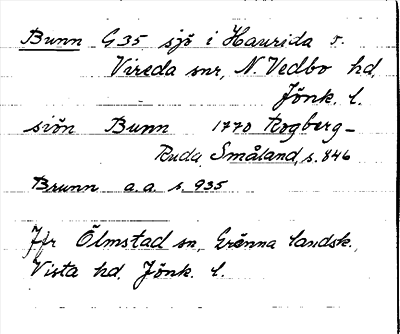 Bunn G35 sjö i Haurida o.
Vireda snr, N. Vedbo hd,
Jönk. l.
siön Bunn 1770 Rogberg-
Ruda, Småland, s. 846
Brunn a.a. s. 935
Jfr Ölmstad sn, Gränna landsk.,
Vista hd, Jönk. l.